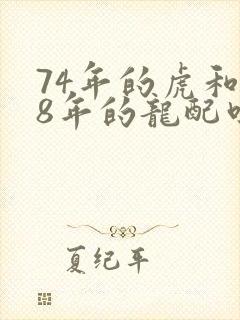 74年的虎和
8年的龍配
夏纪年